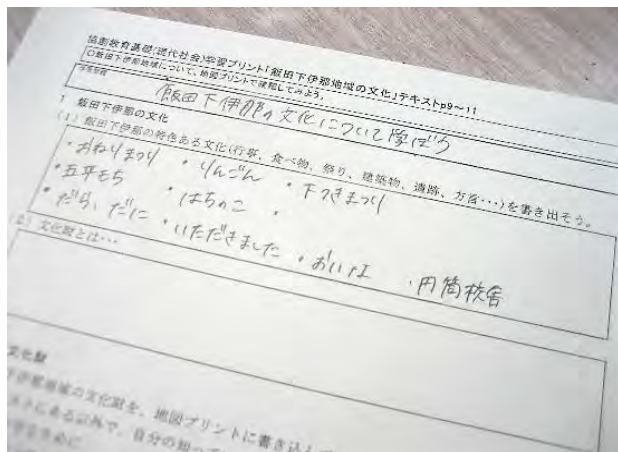 協創教育基礎(現代社会)学習プリント「飯田下伊那地域の文化」テキストp9～11
〇飯田下伊那地域について、地図プリントで確認してみよう。
学習問題
飯田下伊那の文化について学ぼう
1 飯田下伊那の文化
(1) 飯田下伊那の特色ある文化(行事、食べ物、祭り、建築物、遺跡、方言・・・)を書き出そう。
・おねりまつり ・りんごん ・下つきまつり
・五平もち ・はちのこ ・
・だら、だに ・いただきました ・おいけ工 ・円筒校舎
(2) 文化財とは・・・
文化財
伊那地域の文化財を、地図プリントに書き込んで
ストにある以外で、自分の知って